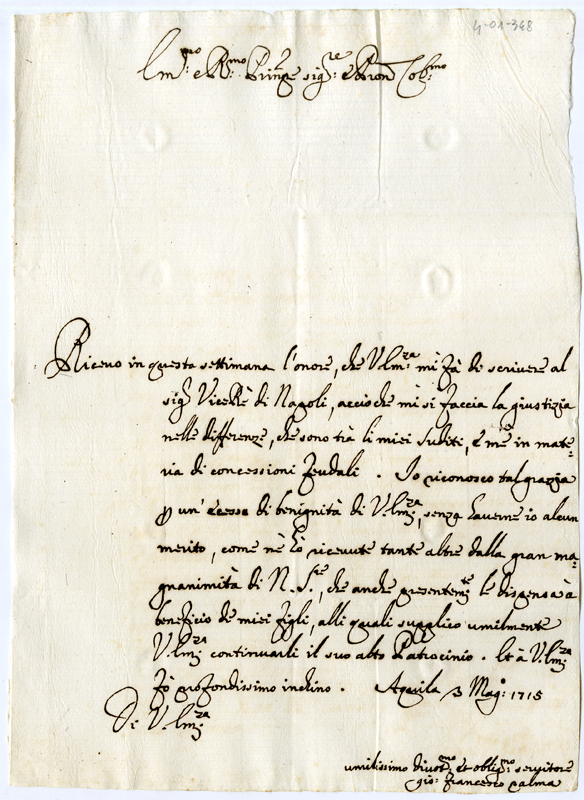 4-01-348
Em.mo e R.mo Prinpe sig.re e Pron Col.mo
Riceuo in questa settimana l'onore, che V.Em.za mi fà di scriuere al
sig.r ViceRè di Napoli, acciò che mi si faccia la giustizia
nelle differenze, che sono trà li miei sudditi, è mè in mate=
ria di concessioni feudali. Io riconosco tal grazia
p un' ecesso di benignità di V.Em.za, senza hauerne io alcun
merito, come nè hò riceuute tante altre dalla gran ma=
gnanimità di N. S.re, che anche presentem.te le dispensa à
beneficio de miei figli, alli quali supplico umilmente
V.Em.za continuarli il suo alto Patrocinio. Et à V.Em.za
fò profondissimo inchino. Aquila 3 Mag.o 1715
Di V.Em.za
umilissimo diuot.mo et oblig.mo seruitore
gio: francesco palma